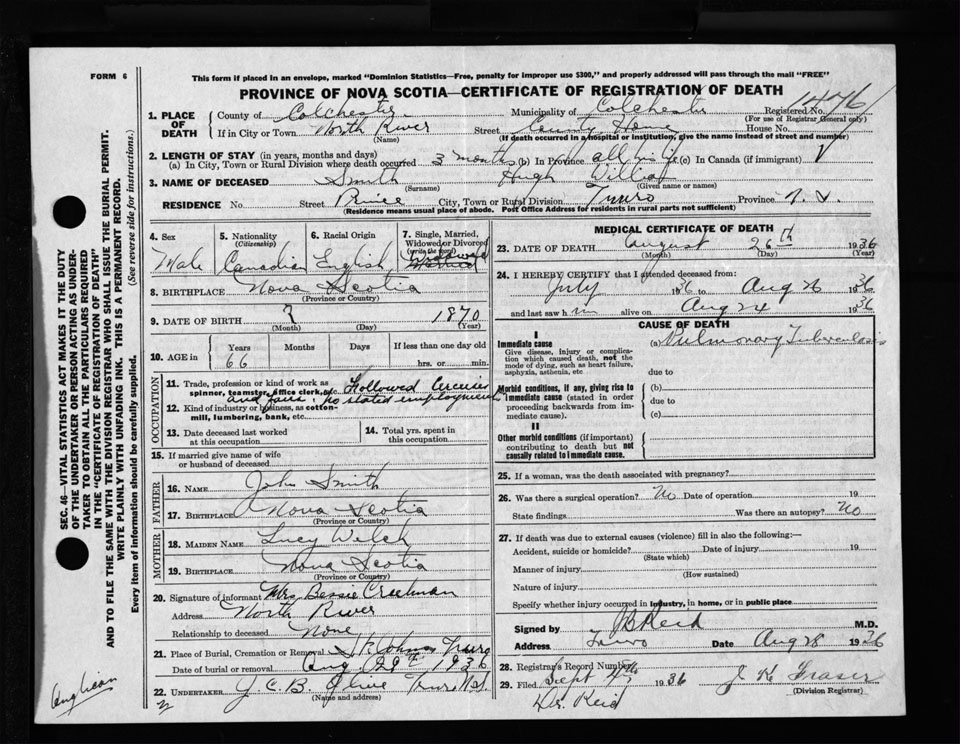 FORM 6
This form if placed in an envelope, marked "Dominion Statistics—Free, penalty for improper use $300," and properly addressed will pass through the mail "FREE"
PROVINCE OF NOVA SCOTIA—CERTIFICATE OF REGISTRATION OF DEATH
Registered No. 1476
(For use of Registrar General only)
1. PLACE OF DEATH
County of Colchester Municipality of Colchester
If in City or Town North River Street County Home House No.
(Name) (If death occurred in a hospital or institution, give the name instead of street and number)
2. LENGTH OF STAY (in years, months and days)
(a) In City, Town or Rural Division where death occurred 3 months (b) In Province all his life (c) In Canada (if immigrant)
3. NAME OF DECEASED Smith Hugh William
(Surname) (Given name or names)
RESIDENCE No. Street Prince City, Town or Rural Division Truro Province N.S.
(Residence means usual place of abode. Post Office Address for residents in rural parts not sufficient)
4. Sex Male
5. Nationality (Citizenship) Canadian
6. Racial Origin English
7. Single, Married, Widowed or Divorced
8. BIRTHPLACE Nova Scotia
(Province or Country)
9. DATE OF BIRTH ? 1870
(Month) (Day) (Year)
10. AGE in Years Months Days If less than one day old
66 hrs. or min.
OCCUPATION
11. Trade, profession or kind of work as spinner, teamster, office clerk, etc. Followed Circuses
and fairs. No stated employment
12. Kind of industry or business, as cotton-mill, lumbering, bank, etc.
13. Date deceased last worked at this occupation
14. Total yrs. spent in this occupation
15. If married give name of wife or husband of deceased
FATHER
16. NAME John Smith
17. BIRTHPLACE Nova Scotia
(Province or Country)
MOTHER
18. MAIDEN NAME Lucy Welch
19. BIRTHPLACE Nova Scotia
(Province or Country)
20. Signature of informant Mrs Bessie Creelman
Address North River
Relationship to deceased None
21. Place of Burial, Cremation or Removal St Johns Truro
Date of burial or removal Aug. 29th 1936
22. UNDERTAKER J. C. B. Olive Truro N.S.
(Name and address)
MEDICAL CERTIFICATE OF DEATH
23. DATE OF DEATH August 26th 1936
(Month) (Day) (Year)
24. I HEREBY CERTIFY that I attended deceased from:
July 1936 to Aug 26 1936
and last saw him alive on Aug 24 1936
CAUSE OF DEATH
I
Immediate cause
Give disease, injury or complication which caused death, not the mode of dying, such as heart failure, asphyxia, asthenia, etc
(a) Pulmonary Tuberculosis
due to
Morbid conditions, if any, giving rise to immediate cause (stated in order proceeding backwards from immediate cause).
(b)
due to
(c)
II
Other morbid conditions (if important) contributing to death but not causally related to immediate cause.
25. If a woman, was the death associated with pregnancy?
26. Was there a surgical operation? No Date of operation 19
State findings Was there an autopsy? No
27. If death was due to external causes (violence) fill in also the following:—
Accident, suicide or homicide? Date of injury 19
(State which)
Manner of injury
(How sustained)
Nature of injury
Specify whether injury occurred in industry, in home, or in public place
Signed by Reid M.D.
Address Truro Date Aug 28 1936
28. Registrar's Record Number
29. Filed Sept 4th 1936 J K Fraser
(Division Registrar)
Dr. Reid
SEC. 46—VITAL STATISTICS ACT MAKES IT THE DUTY
OF THE UNDERTAKER OR PERSON ACTING AS UNDERTAKER TO OBTAIN ALL THE PARTICULARS REQUIRED
IN THE "CERTIFICATE OF REGISTRATION OF DEATH"
AND TO FILE THE SAME WITH THE DIVISION REGISTRAR WHO SHALL ISSUE THE BURIAL PERMIT.
WRITE PLAINLY WITH UNFADING INK. THIS IS A PERMANENT RECORD.
Every item of information should be carefully supplied. (See reverse side for instructions.)
Anglican